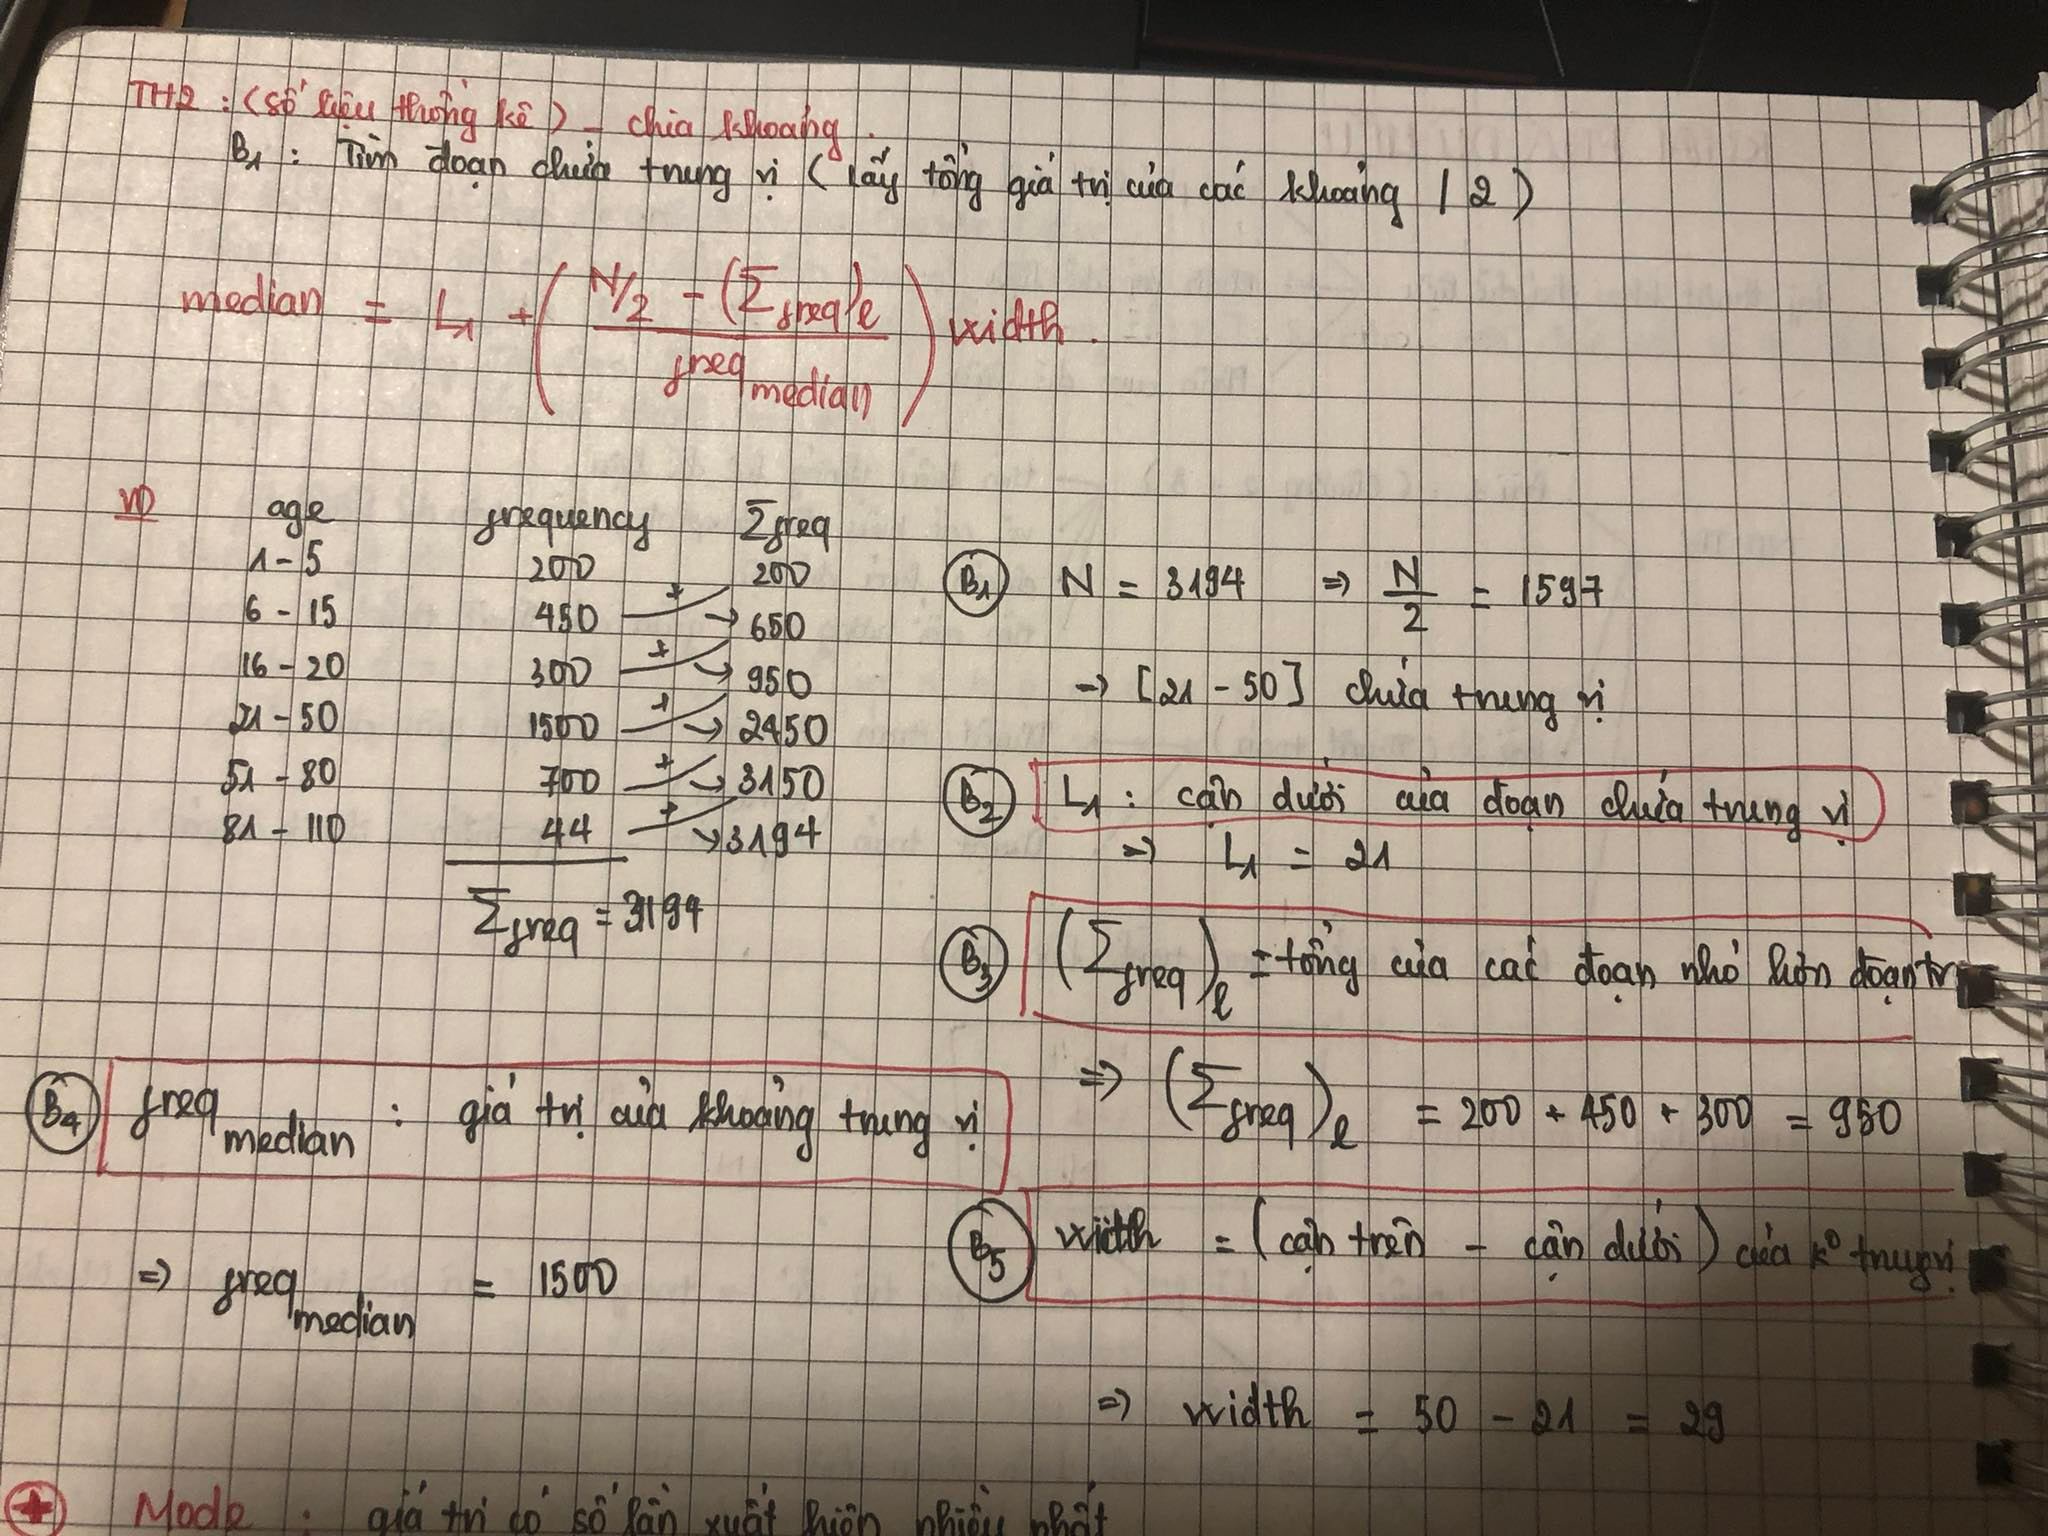 TH2 : (số liệu thống kê) - chia khoảng.
B1 : Tìm đoạn chứa trung vị (lấy tổng giá trị của các khoảng / 2)
median = L1 + ( (N/2 - (Σfreq)l) / freq median ) width.
VD
age frequency Σfreq
1 - 5 200 200
6 - 15 450 + 650
16 - 20 300 + 950
21 - 50 1500 + 2450
51 - 80 700 + 3150
81 - 110 44 + 3194
Σfreq = 3194
B1 N = 3194 => N/2 = 1597
-> [21 - 50] chứa trung vị
B2 L1 : cận dưới của đoạn chứa trung vị
=> L1 = 21
B3 (Σfreq)l = tổng của các đoạn nhỏ hơn đoạn tr
=> (Σfreq)l = 200 + 450 + 300 = 950
B4 freq median : giá trị của khoảng trung vị
=> freq median = 1500
B5 width = (cận trên - cận dưới) của k° trung vị
=> width = 50 - 21 = 29
+ Mode : giá trị có số lần xuất hiện nhiều nhất